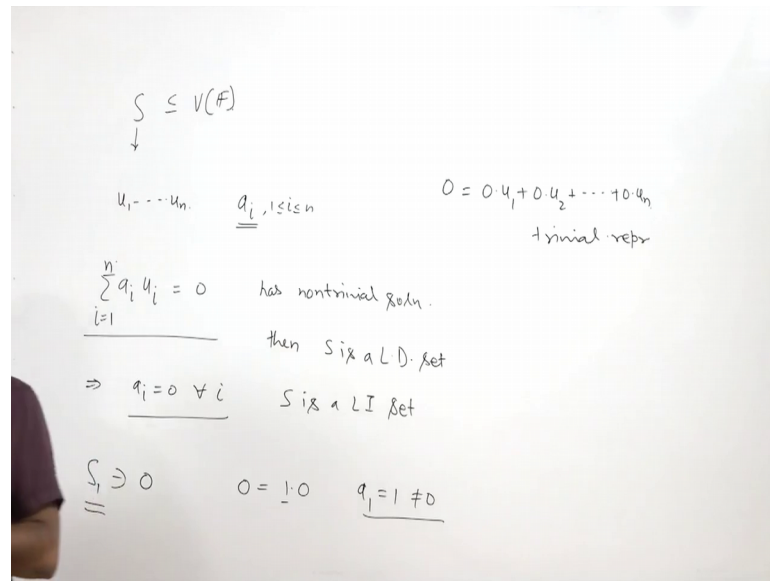 S ⊆ V(F)
↓
u₁ - - - uₙ. aᵢ , 1≤i≤n
0 = 0·u₁ + 0·u₂ + ··· + 0·uₙ
trivial repr
n
∑ aᵢ uᵢ = 0 has nontrivial soln.
i=1
then S is a L.D. set
⇒ aᵢ = 0 ∀ i S is a LI set
S₁ ∋ 0 0 = 1·0 a₁ = 1 ≠ 0